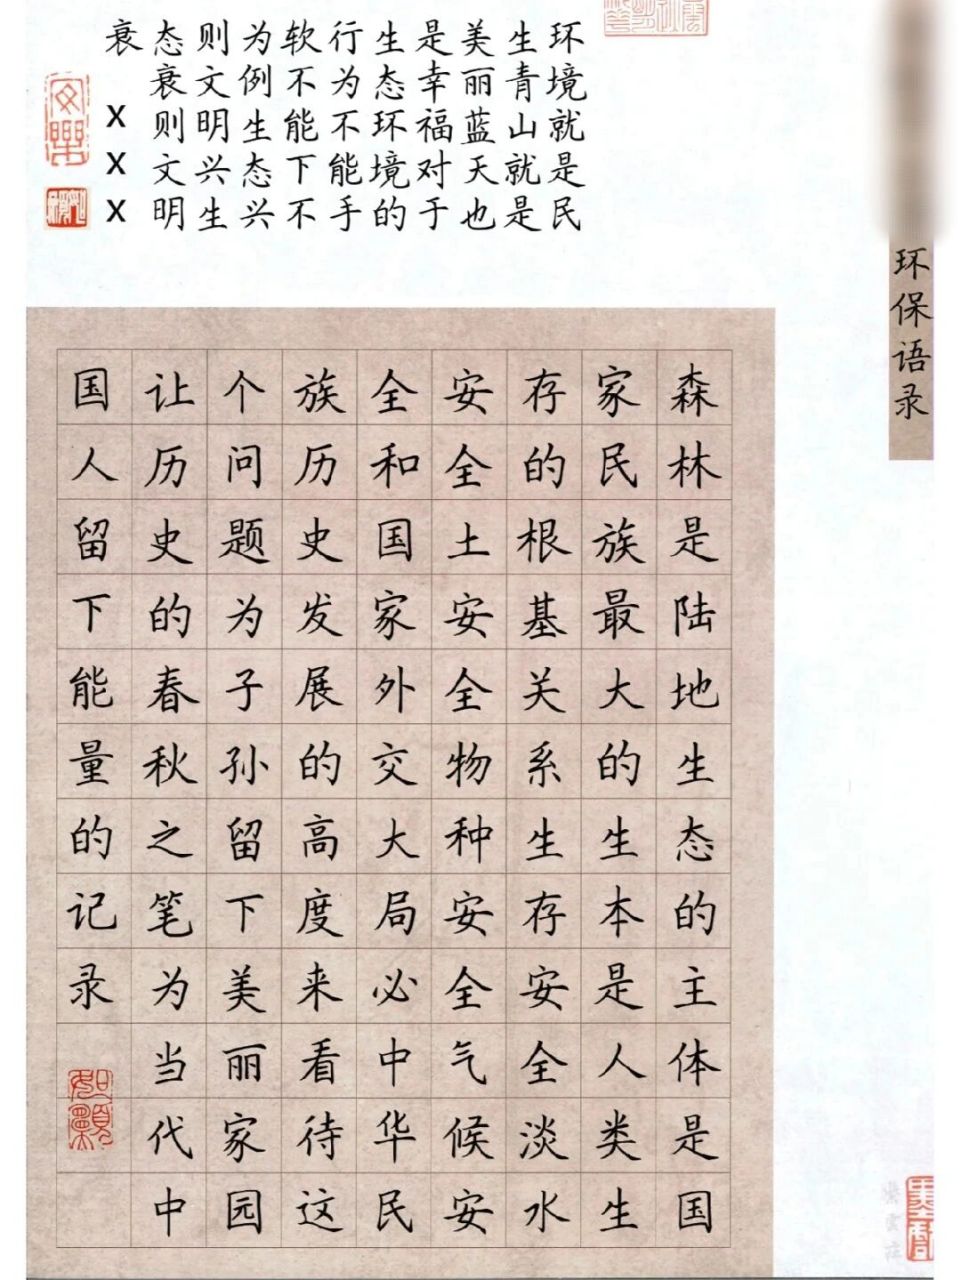 环保语录
环境就是民
生青山就是
美丽蓝天也
是幸福对于
生态环境的
行为不能手
软不能下不
为例生态兴
则文明兴生
态衰则文明
衰XXX
森林是陆地生态的主体是国
家民族最大的生本是人类生
存的根基关系生存安全淡水
安全土安全物种安全气候安
全和国家外交大局必中华民
族历史发展的高度来看待这
个问题为子孙留下美丽家园
让历史的春秋之笔为当代中
国人留下能量的记录